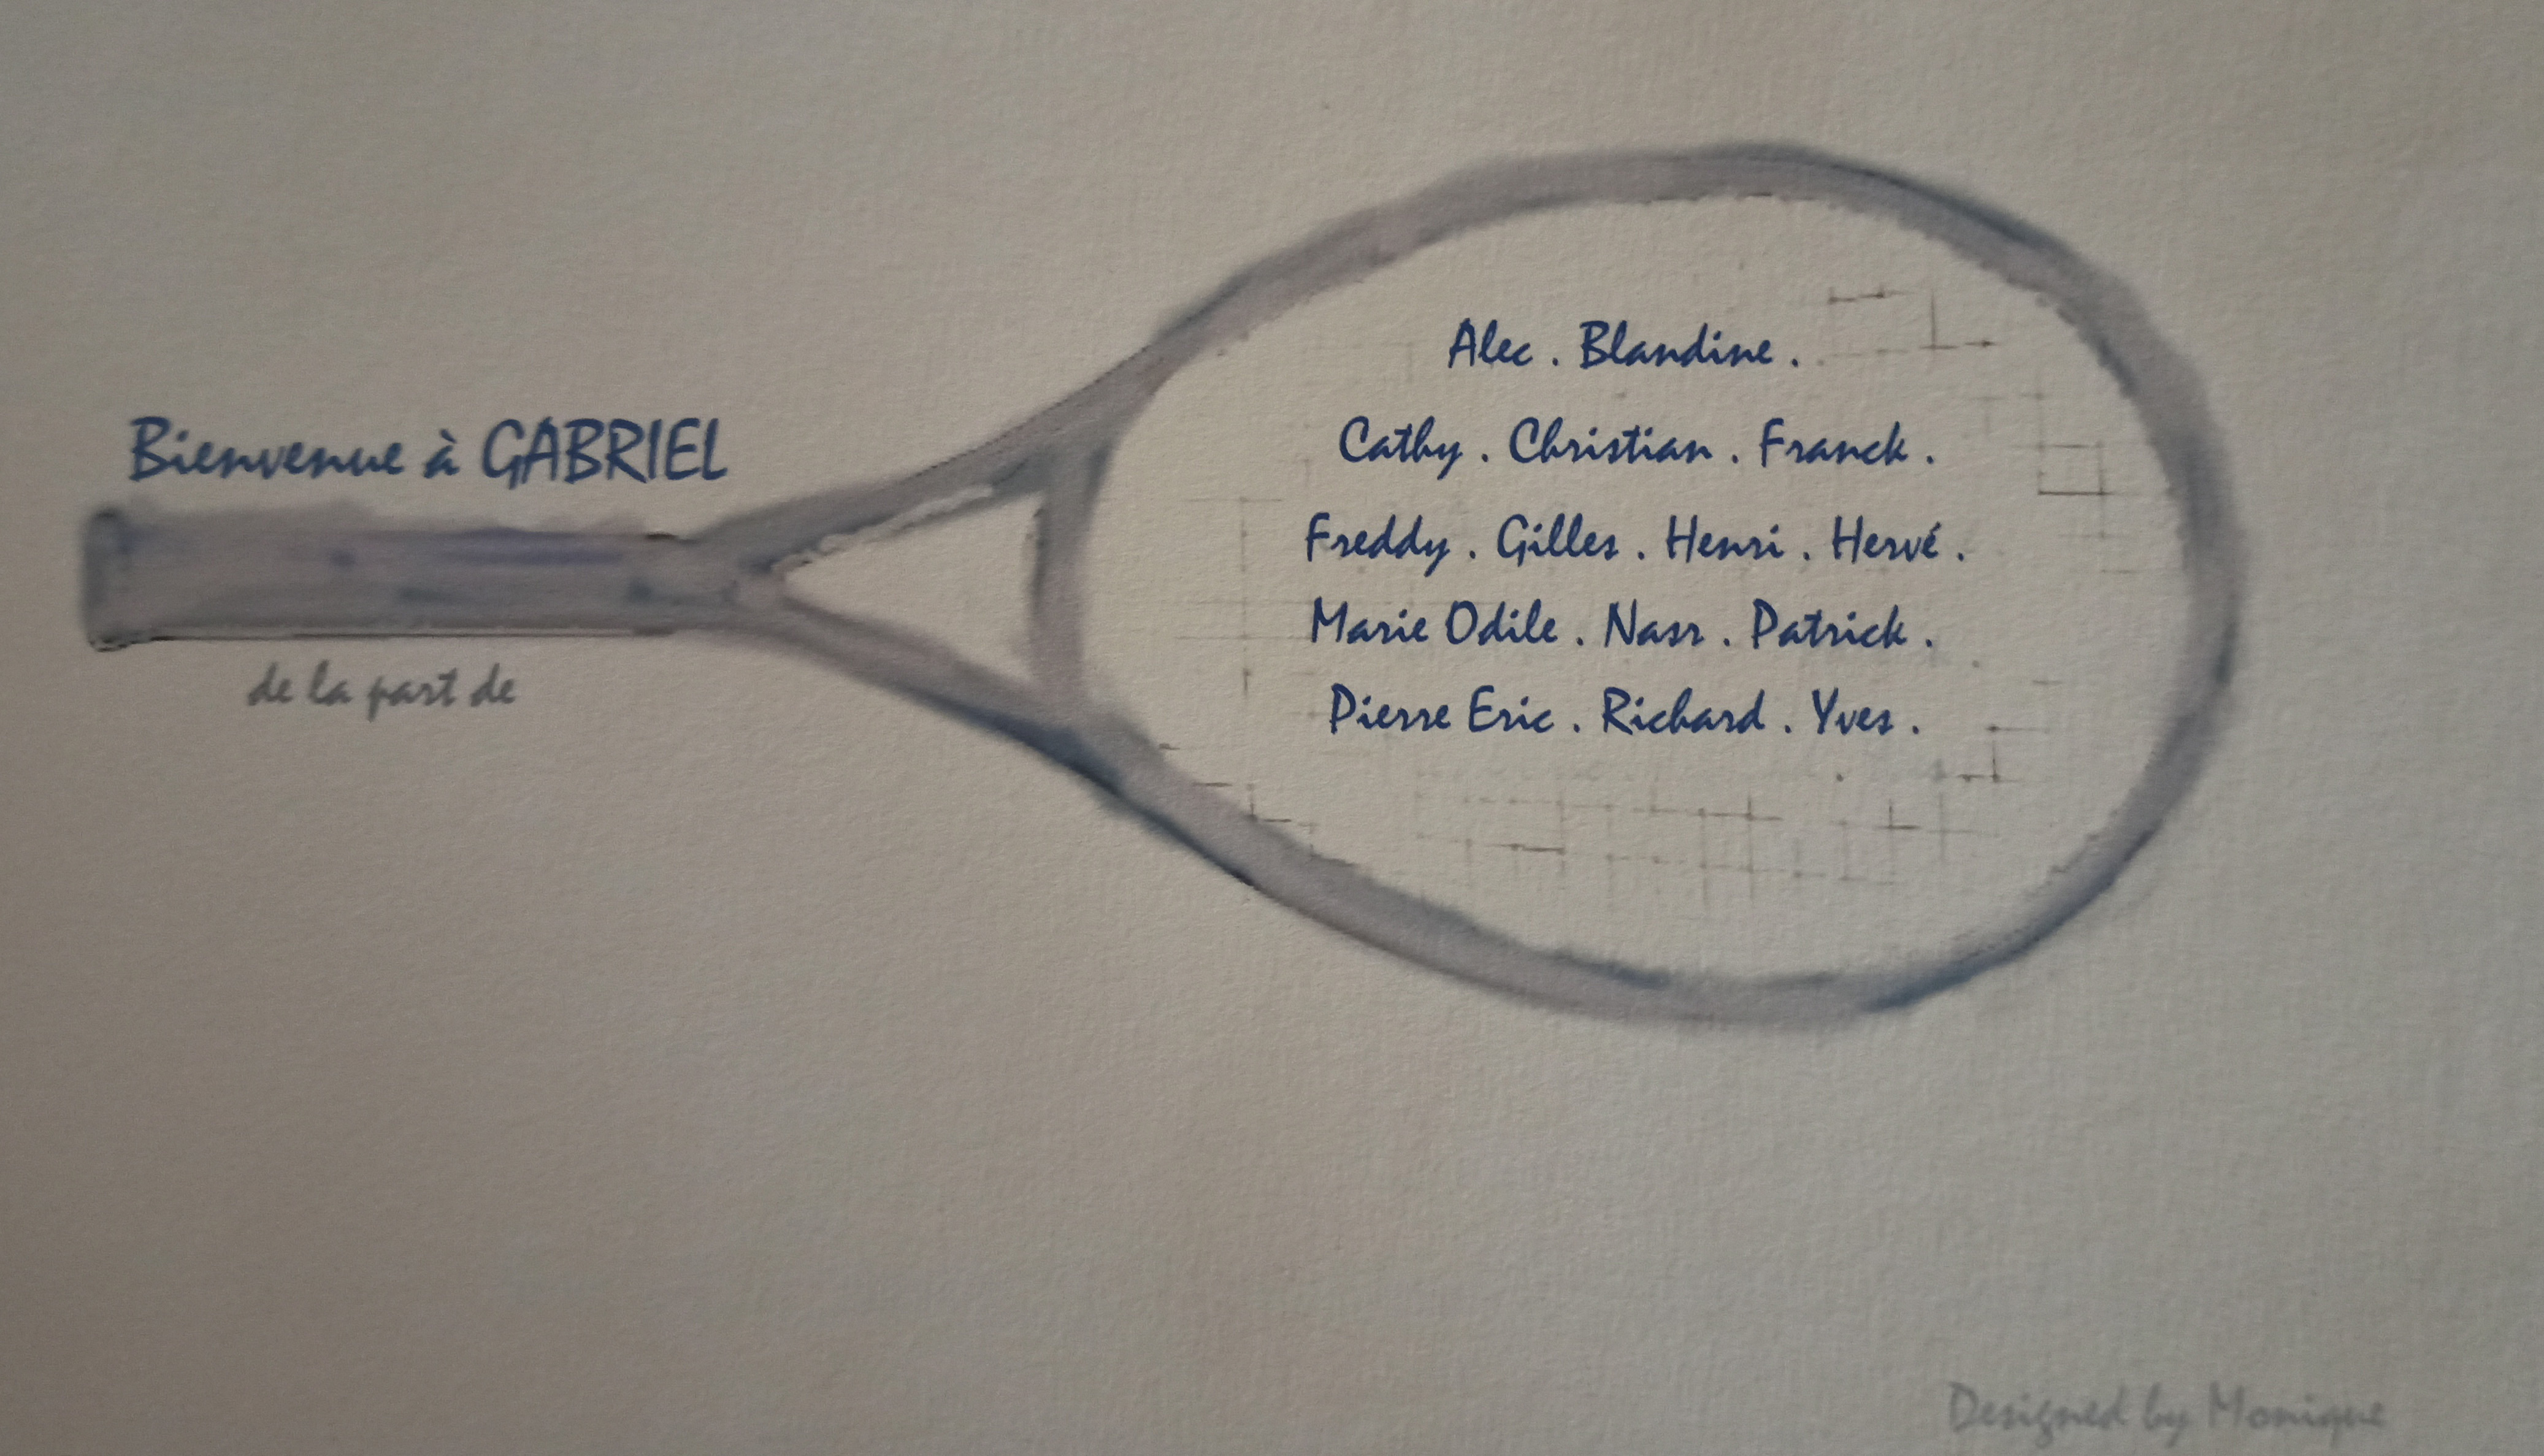 Bienvenue à GABRIEL
de la part de
Alec . Blandine .
Cathy . Christian . Franck .
Freddy . Gilles . Henri . Hervé .
Marie Odile . Nasr . Patrick .
Pierre Eric . Richard . Yves .
Designed by Monique